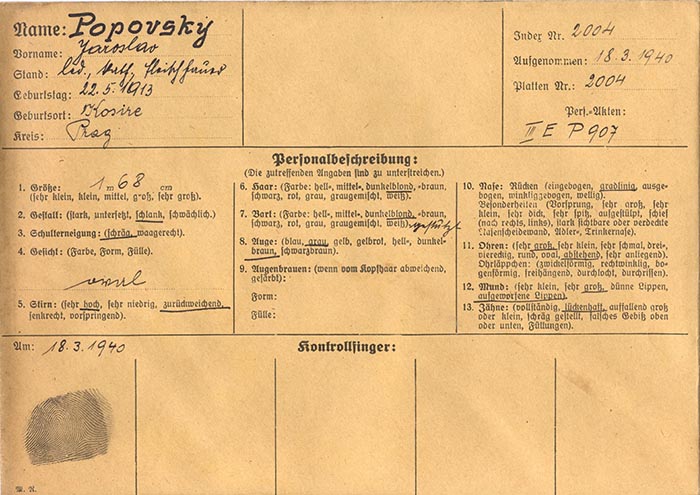 Name: Popovsky
Vorname: Jaroslav
Stand: led., kath., Fleischhauer
Geburtstag: 22.5.1913
Geburtsort: Kosire
Kreis: Prag
Index Nr. 2004
Aufgenommen: 18.3.1940
Platten Nr.: 2004
Pers.-Akten:
III E P 907
Personalbeschreibung:
(Die zutreffenden Angaben sind zu unterstreichen.)
1. Größe: 1 m 68 cm
(sehr klein, klein, mittel, groß, sehr groß).
2. Gestalt: (stark, untersetzt, schlank, schwächlich).
3. Schulterneigung: (schräg, waagerecht).
4. Gesicht: (Farbe, Form, Fülle).
oval
5. Stirn: (sehr hoch, sehr niedrig, zurückweichend,
senkrecht, vorspringend).
6. Haar: (Farbe: hell-, mittel-, dunkelblond, -braun,
schwarz, rot, grau, graugemischt, weiß).
7. Bart: (Farbe: hell-, mittel-, dunkelblond, -braun,
schwarz, rot, grau, graugemischt, weiß). gestutzt
8. Auge: (blau, grau, gelb, gelbrot, hell-, dunkel-
braun, schwarzbraun).
9. Augenbrauen: (wenn vom Kopfhaar abweichend,
gefärbt):
Form:
Fülle:
10. Nase: Rücken (eingebogen, gradlinig, ausge-
bogen, winkliggebogen, wellig).
Besonderheiten (Vorsprung, sehr groß, sehr
klein, sehr dick, sehr spitz, aufgestülpt, schief
(nach rechts, links), stark sichtbare oder verdeckte
Nasenscheidewand, Adler-, Trinkernase).
11. Ohren: (sehr groß, sehr klein, sehr schmal, drei-,
viereckig, rund, oval, abstehend, sehr anliegend).
Ohrläppchen: (zwickelförmig, rechtwinklig, bo-
genförmig, freihängend, durchlocht, durchrissen).
12. Mund: (sehr klein, sehr groß, dünne Lippen,
aufgeworfene Lippen).
13. Zähne: (vollständig, lückenhaft, auffallend groß
oder klein, schräg gestellt, falsches Gebiß oben
oder unten, Füllungen).
Am: 18.3.1940
Kontrollfinger: